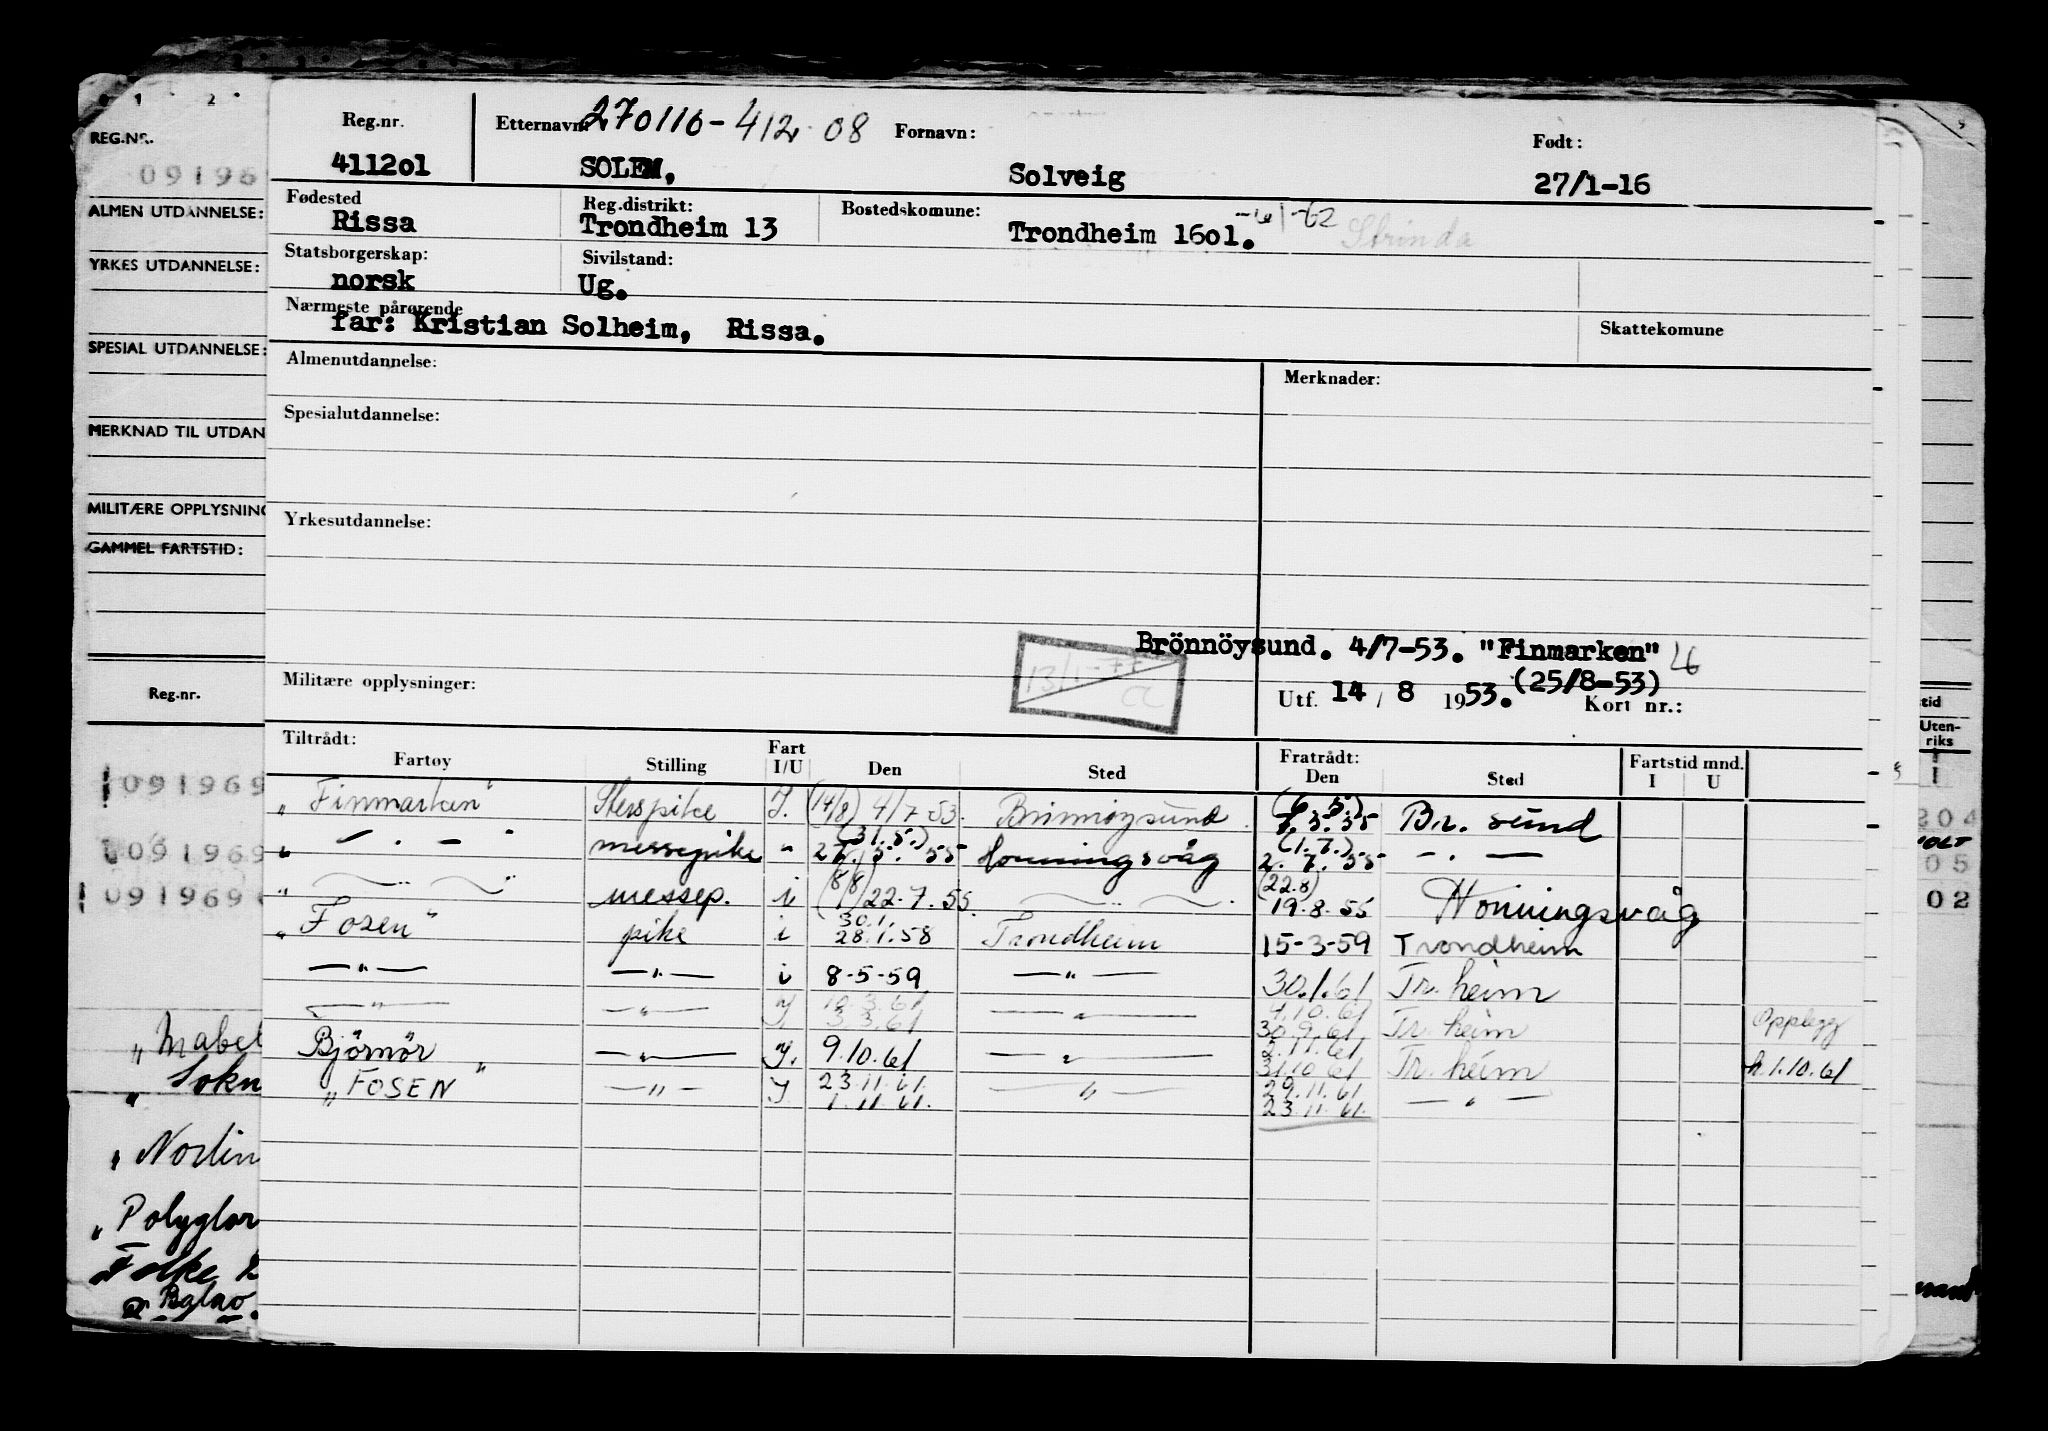 Reg.nr. Etternavn: 270116-412 08 Fornavn: Født:
4112o1 SOLEM, Solveig 27/1-16
Fødested Reg.distrikt: Bostedskomune:
Rissa Trondheim 13 Trondheim 16o1. -62 Strinda
Statsborgerskap: Sivilstand:
norsk Ug.
Nærmeste pårørende Skattekomune
far: Kristian Solheim, Rissa.
Almenutdannelse: Merknader:
Spesialutdannelse:
Yrkesutdannelse:
Brönnöysund. 4/7-53. "Finmarken"
13/1-77
Militære opplysninger: Utf. 14 / 8 1953. (25/8-53) Kort nr.:
Tiltrådt: Fratrådt: Fartstid mnd.
Fartøy Stilling Fart I/U Den Sted Den Sted I U
"Finmarken" I. (14/8) 4/7-53. Brönnöysund (6.5.) Br. sund
" - . - " messepike " (31.5.) 27.5.55 Honningsvåg (1.7.) 2.7.55 - . -
" - " - " messep. i (8/8) 22.7.55. - " - (22.8) 19.8.55 Honningsvåg
"Fosen" pike i 30.1. 28.1.58 Trondheim 15-3-59 Trondheim
- " - - " - i 8-5-59 - " - 30.1.61 Tr.heim
- " - - " - I 10.3.61 3.3.61 - " - 4.10.61 30.9.61 Tr.heim Opplegg
Björnör " - " - I. 9.10.61 - " - 2.11.61 31.10.61 Tr.heim h. 1.10.61
"FOSEN - " - I 23.11.61. 1.11.61. - " - 29.11.61 23.11.61. - " -
0 1 2
REG.NR.
09196
ALMEN UTDANNELSE:
YRKES UTDANNELSE:
SPESIAL UTDANNELSE:
MERKNAD TIL UTDAN
MILITÆRE OPPLYSNING
GAMMEL FARTSTID:
Reg.nr.
091969
091969
091969
"Mabel
"Sokn
"Norlin
"Polyglor
Folke 2
tid
Uten-
riks
1
204
05
02